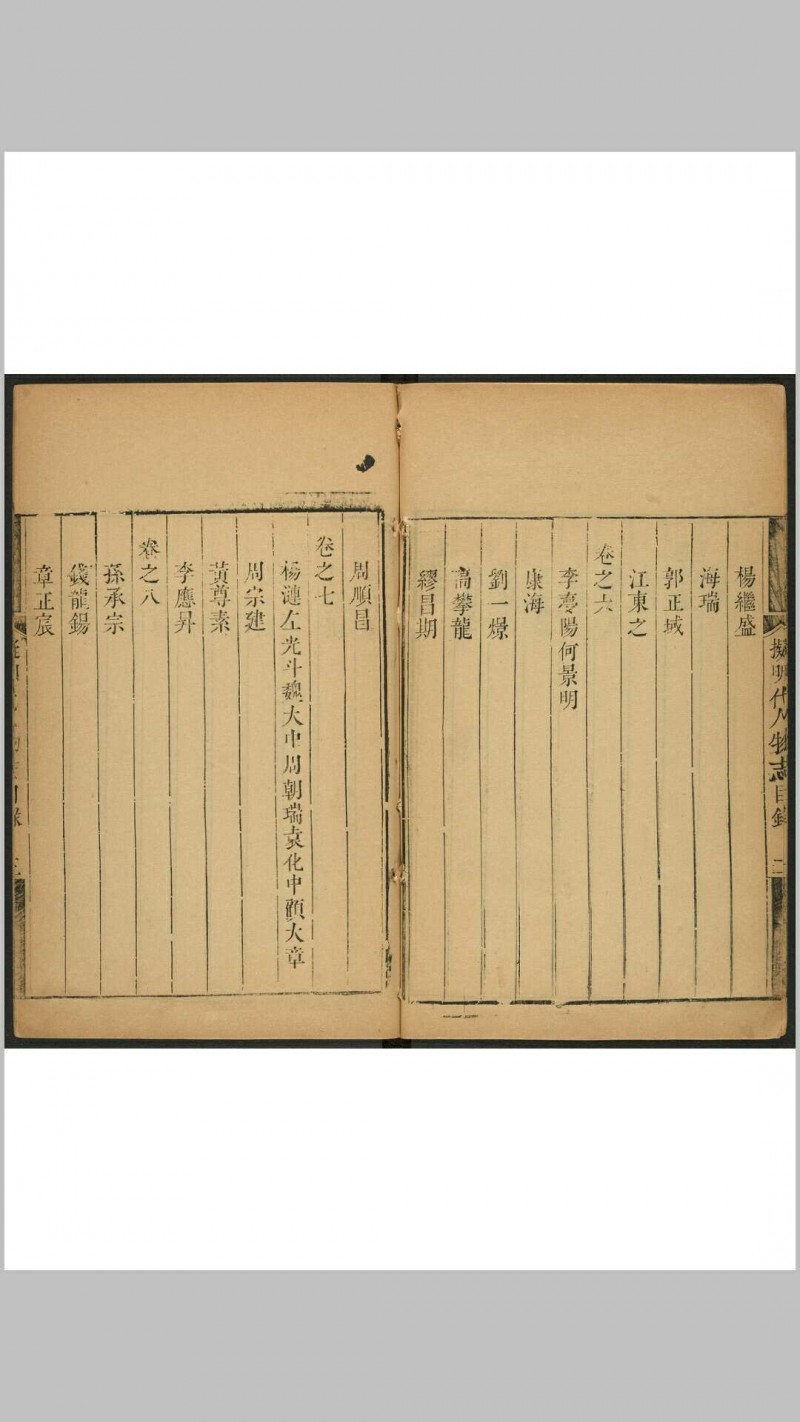 楊繼盛
海瑞
郭正域
江東之
卷之六
李夢陽何景明
康海
劉一燝
高攀龍
繆昌期
擬明代人物志目錄 二
周順昌
卷之七
楊漣左光斗魏大中周朝瑞袁化中顧大章
周宗建
黃尊素
李應昇
卷之八
孫承宗
錢龍錫
章正宸